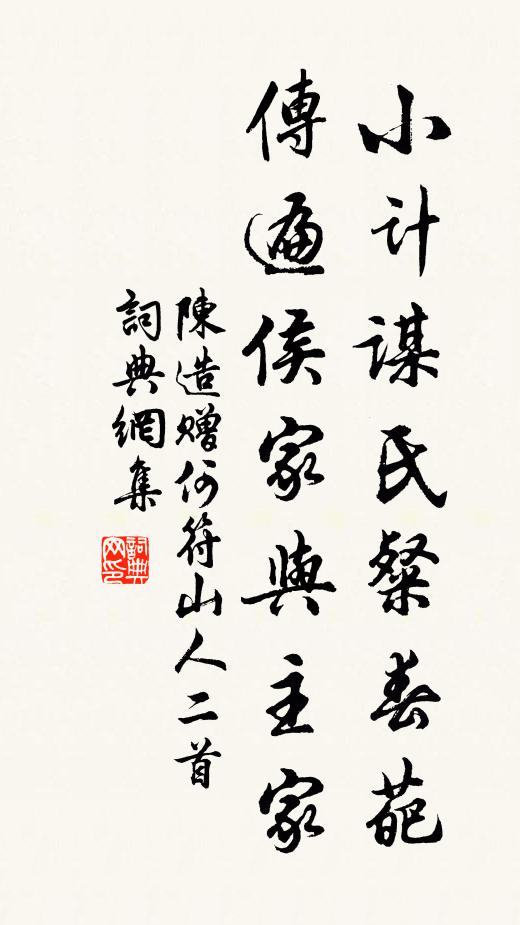 小計謀氏粲春葩
傳遍侯家與主家
陳造贈何符山人二首
詞典網集
詞典网印